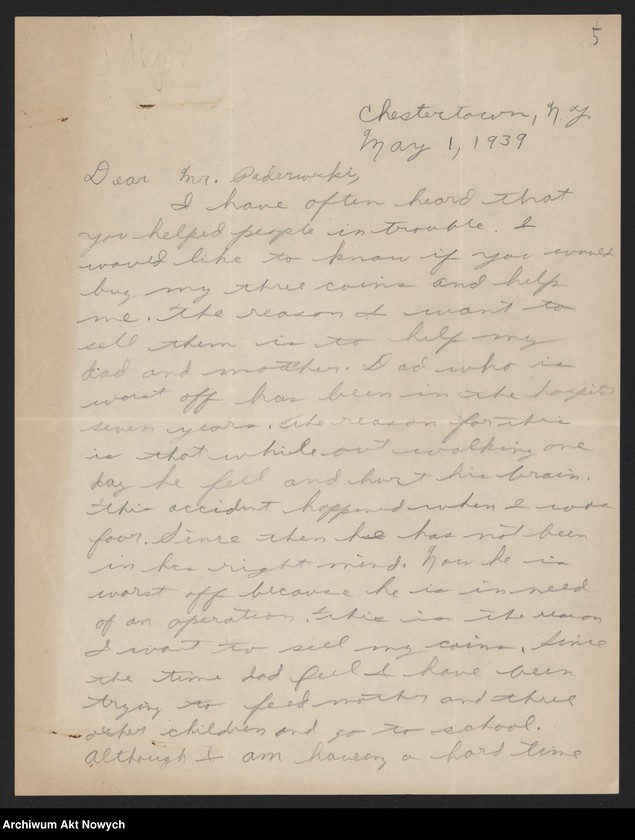 5
Chestertown, N.Y.
May 1, 1939
Dear Mr. Paderwiski,
I have often heard that
you helped people in trouble. I
would like to know if you would
buy my three coins and help
me. The reason I want to
sell them is to help my
dad and mother. Dad who is
worst off has been in the hospital
seven years. The reason for this
is that while out walking one
day he fell and hurt his brain.
This accident happened when I was
four. Since then he has not been
in his right mind. Now he is
worst off because he is in need
of an operation. This is the reason
I want to sell my coins. Since
the time dad fell I have been
trying to feed mother and three
other children and go to school.
Although I am having a hard time
Archiwum Akt Nowych